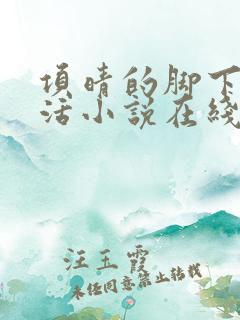 項晴的脚下
活小说在线
汪玉霞
未经同意禁止转载